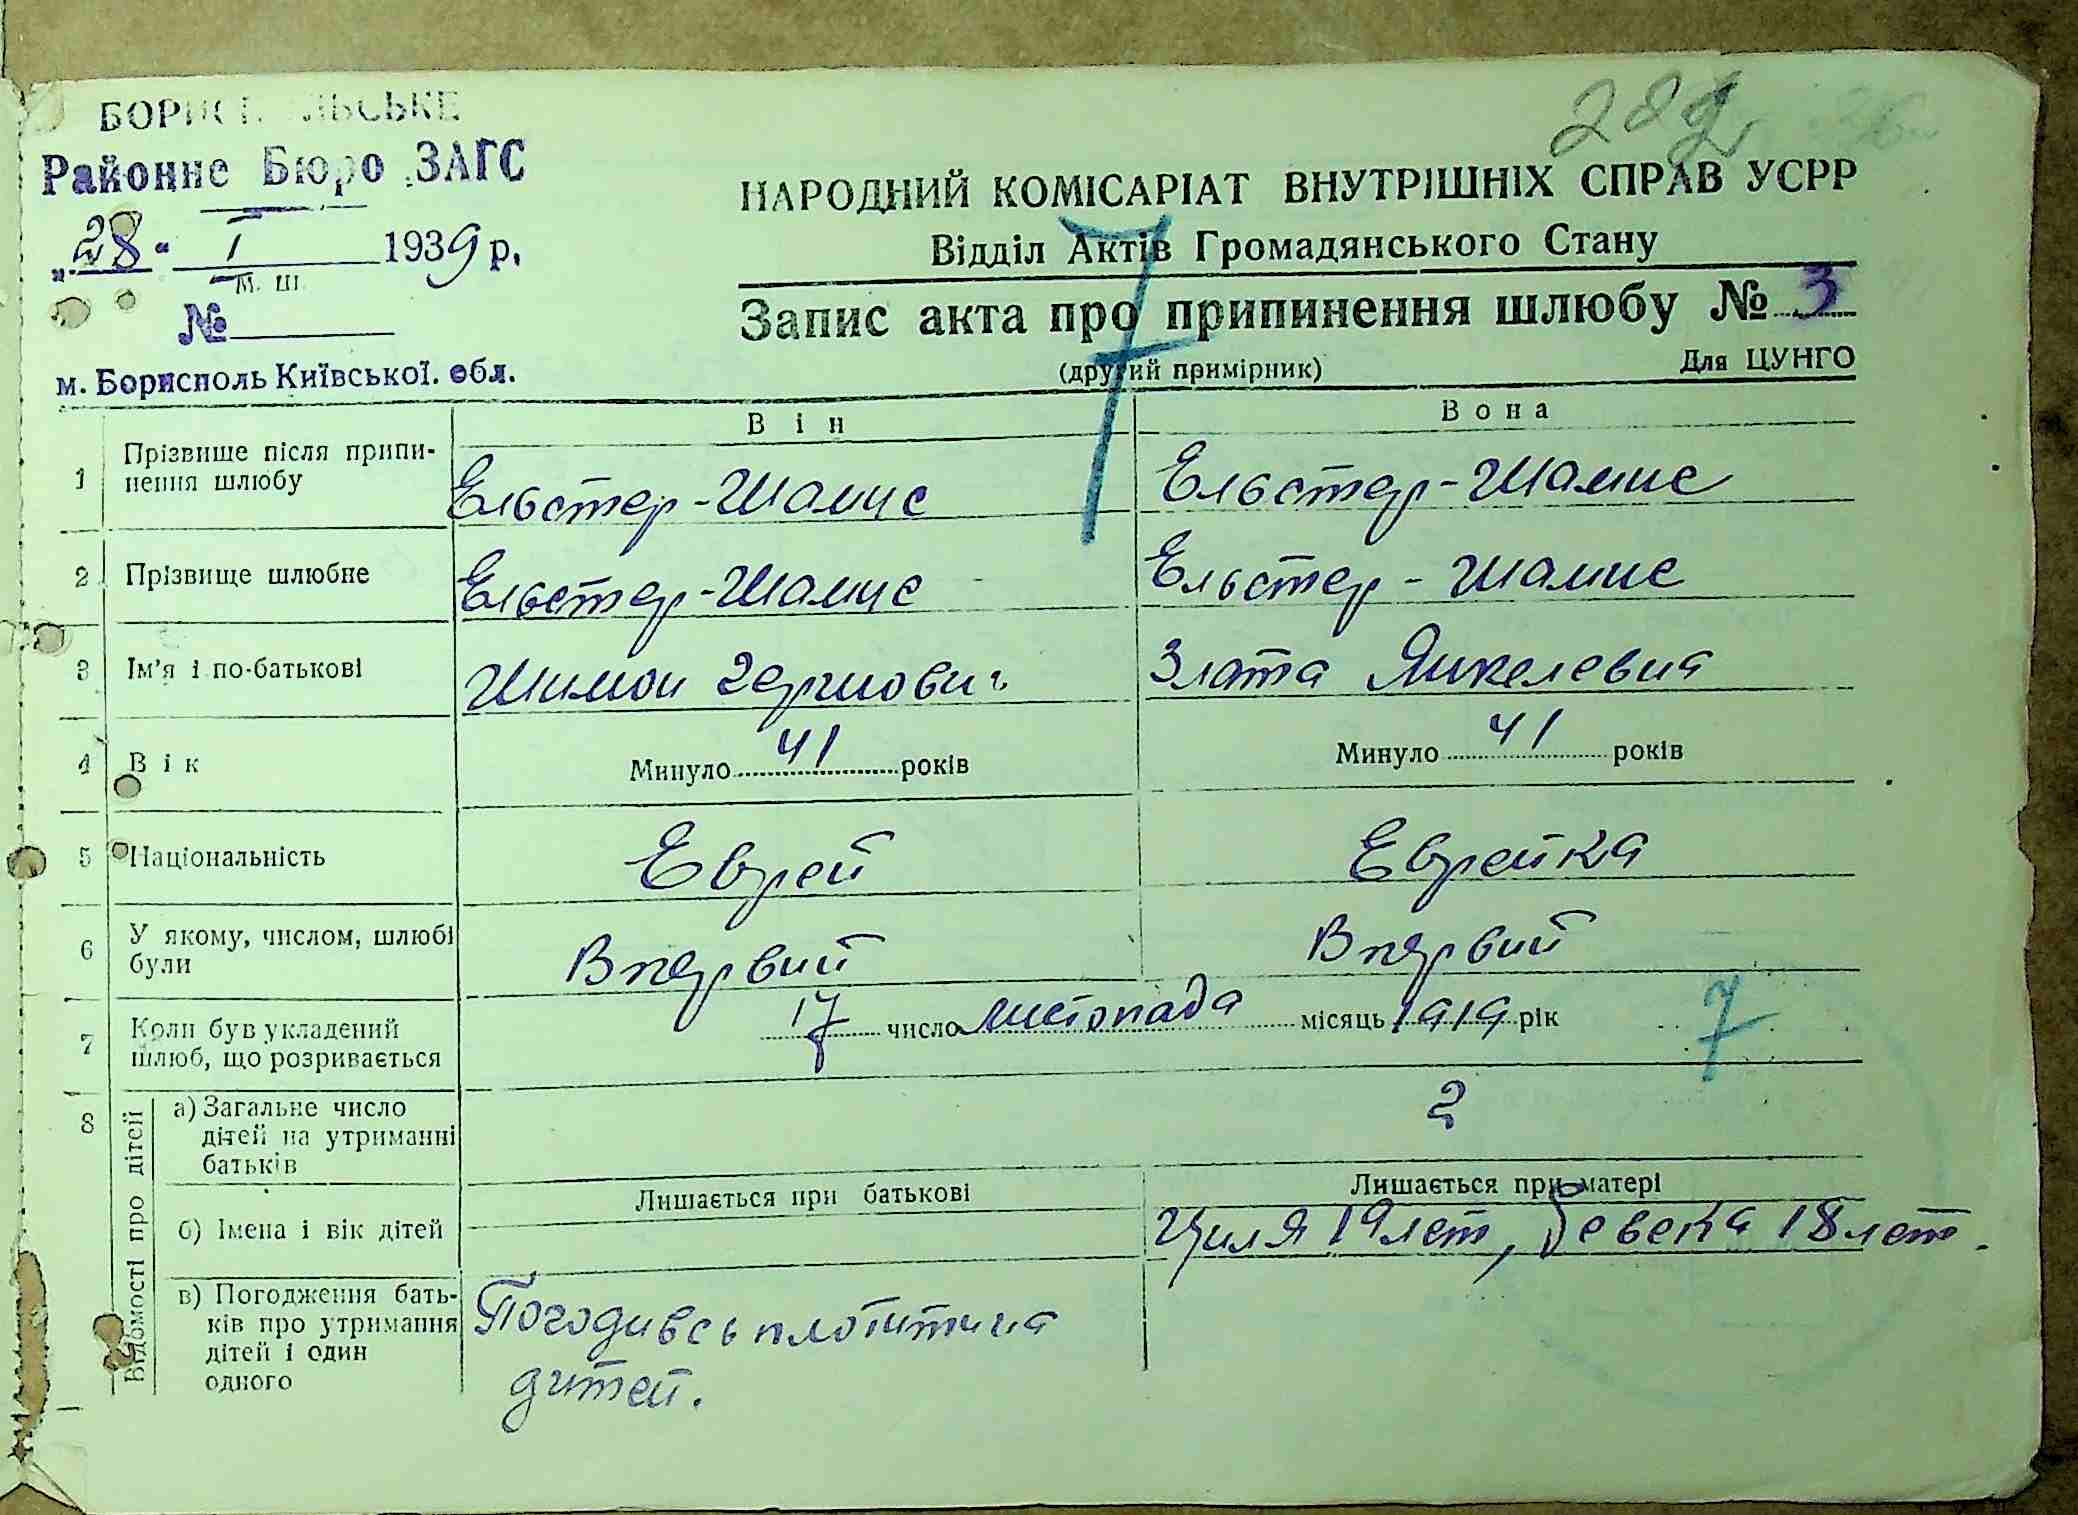 БОРИСПІЛЬСЬКЕ
Районне Бюро ЗАГС
„28“ I 1939 р.
м. ш.
№
м. Борисполь Київської. обл.
282
НАРОДНИЙ КОМІСАРІАТ ВНУТРІШНІХ СПРАВ УСРР
Відділ Актів Громадянського Стану
Запис акта про припинення шлюбу № 3
(другий примірник) Для ЦУНГО
7
Він Вона
1 Прізвище після припи-
нення шлюбу
Ельстер-Шамис Ельстер-Шамис
2 Прізвище шлюбне Ельстер-Шамис Ельстер-Шамис
3 Ім'я і по-батькові Шимон Гершович Злата Янкелевна
4 Вік Минуло 41 років Минуло 41 років
5 Національність Еврей Еврейка
6 У якому, числом, шлюбі
були
Впервий Впервий
7 Коли був укладений
шлюб, що розривається
17 число листопада місяць 1919 рік
7
8 Відомості про дітей
а) Загальне число
дітей на утриманні
батьків
2
Лишається при батькові Лишається при матері
б) Імена і вік дітей Циля 19 лет, Бевека 18 лет.
в) Погодження бать-
ків про утримання
дітей і один
одного
Погодивсь платити на
дитей.